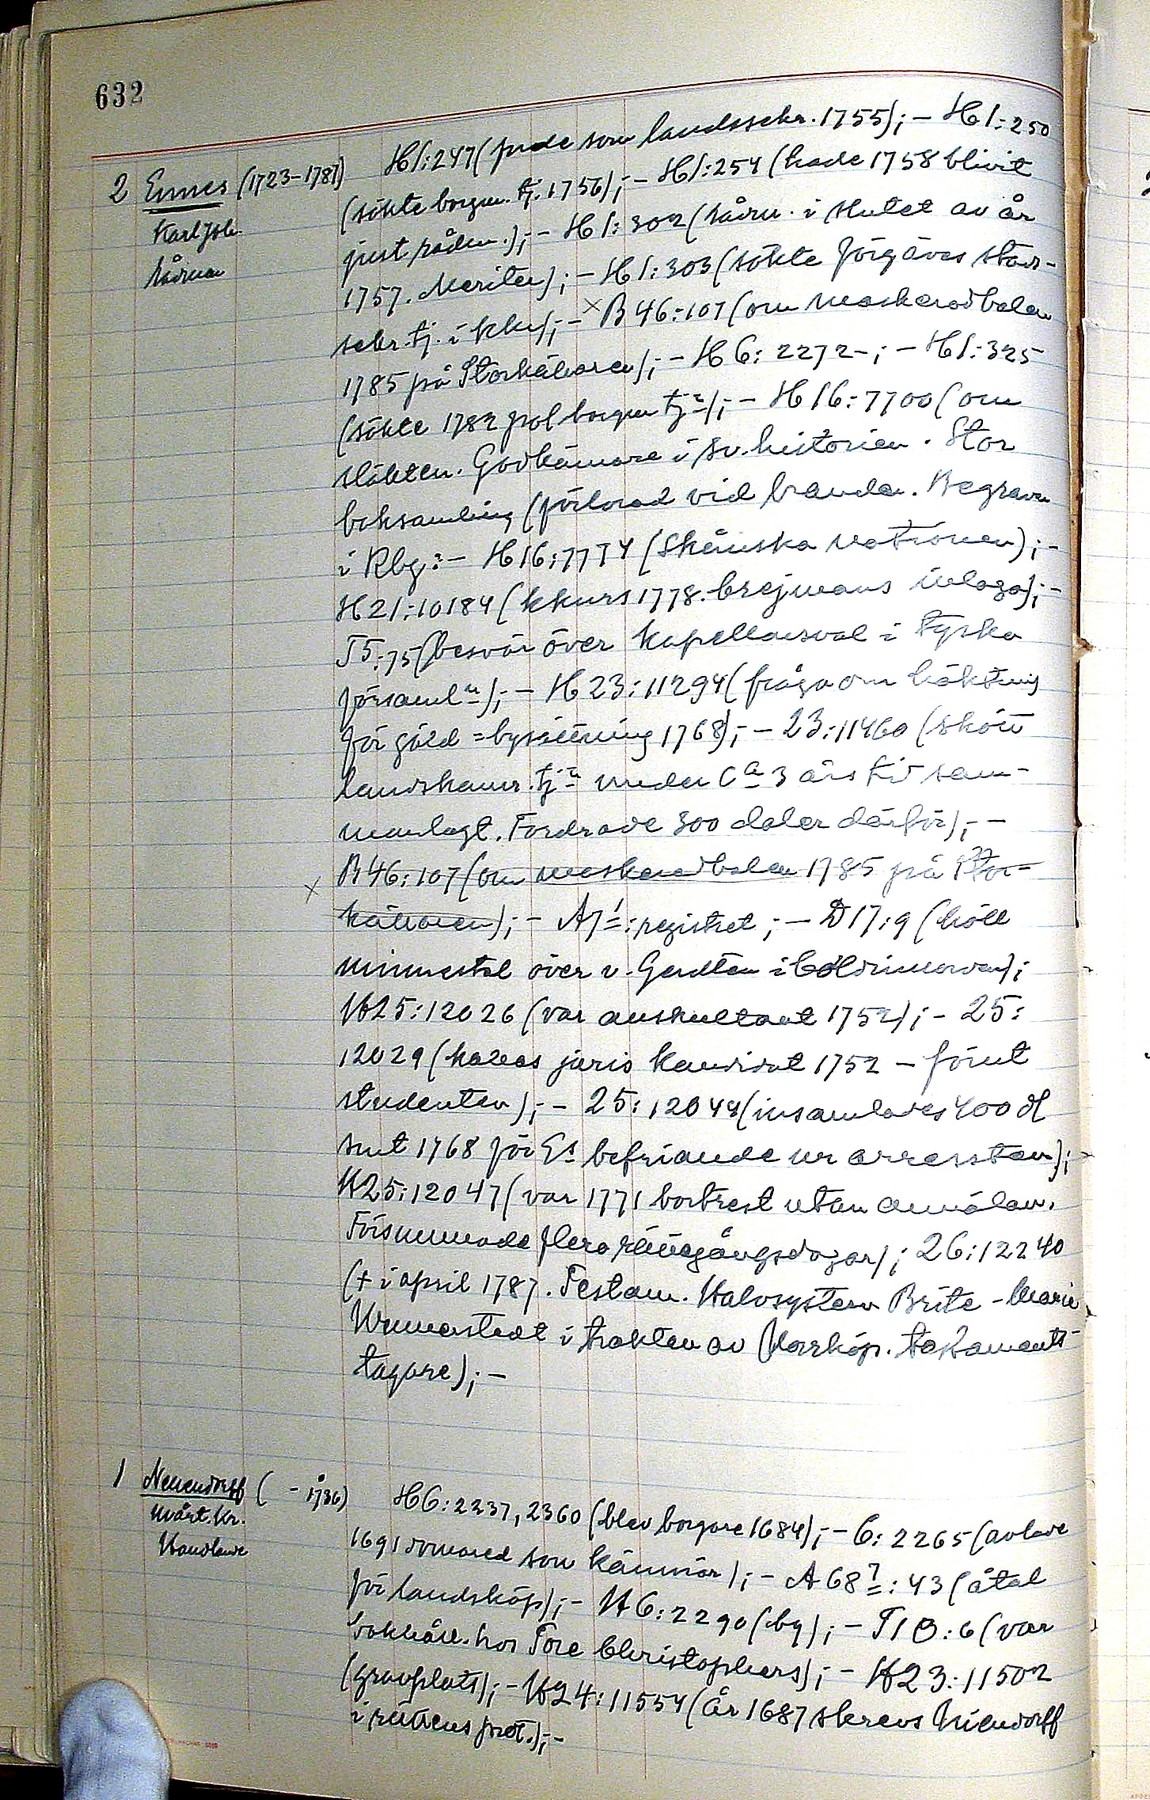 632
2 Ennes (1723-1787) H1:247 ( som landssekr. 1755);- H1:250
Karl Joh. (sökte borgm. tj. 1756);- H1:254 (hade 1758 blivit
Rådman just rådm.);- H1:302 (rådm. i slutet av år
1757. Meriter);- H1:303 (sökte förgäves stads-
sekr. tj. i );- × B46:107 (om maskeradbalen
1785 på Storkällaren);- H6:2272-;- H1:325
(sökte 1782 pol borgm tjn);- H16:7700 (om
släkten. Godkännare i sv. historien. Stor
boksamling (förlorad vid branden. Begraven
i Rbg:- H16:7774 (Skånska nationen);-
H21:10184 (kkurs 1778. inlaga);-
T5:75 (besvär över kapellansval i tyska
församln);- H23:11294 (fråga om häktning
för gäld = bysättning 1768);- 23:11460 (skött
landskamr. tjn under Ca 3 års tid sam-
manlagt. Fordrade 300 daler därför);-
× B46:107 (om maskeradbalen 1785 på Stor-
källaren);- A71:registret;- D17:9 (höll
minnestal över v. Gerdten i );
H25:12026 (var auskultant 1752);- 25:
12029 (kallas juris kandidat 1752 - förut
studenten);- 25:12044 (insamlades 400 dl
smt 1768 för Es befriande ur arresten);
H25:12047 (var 1771 bortrest utan anmälan.
Försummade flera rättegångsdagar); 26:12240
(† i april 1787. Testam. Halvsystern Brite-Marie
i trakten av Norrköp. testaments-
tagare);-
1 Neuendorff ( - år 1736) H6:2237, 2360 (blev borgare 1684);- 6:2265 (avlade
Mårt. Kr. 1691 domared som kämnär);- A68 7:43 (åtal
Handlande för landsköp);- H6:2290 (by);- T18:6 (var
bokhåll. hos Tore Christophers);- H23:11502
(gravplats);- H24:11554 (år 1687 skrevs Niendorff
i rättens prot.);-